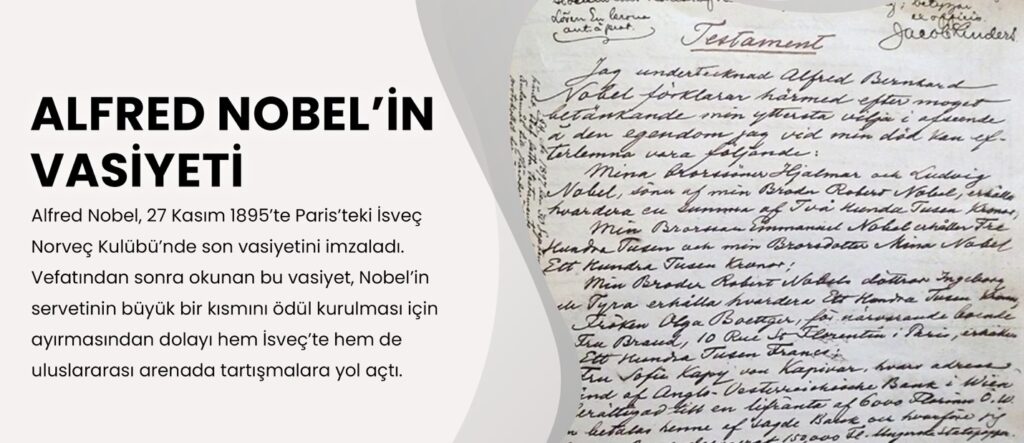 ALFRED NOBEL’İN
VASİYETİ
Alfred Nobel, 27 Kasım 1895’te Paris’teki İsveç
Norveç Kulübü’nde son vasiyetini imzaladı.
Vefatından sonra okunan bu vasiyet, Nobel’in
servetinin büyük bir kısmını ödül kurulması için
ayırmasından dolayı hem İsveç’te hem de
uluslararası arenada tartışmalara yol açtı.
Testament
Jag undertecknad Alfred Bernhard
Nobel förklarar härmed efter moget
betänkande min yttersta vilja i afseende
å den egendom jag vid min död kan ef-
terlemna vara följande:
Mina brorssöner Hjalmar och Ludvig
Nobel, söner af min Broder Robert Nobel, erhålla
hvardera en summa af Två Hundra Tusen Kronor;
Min Brorsson Emmanuel Nobel erhåller Tre
Hundra Tusen och min Brorsdotter Mina Nobel
Ett Hundra Tusen Kronor;
Min Broder Robert Nobels döttrar Ingeborg
Tyra erhålla hvardera Ett Hundra Tusen
Fröken Olga Boettger, för närvarande boende
Fru Brand, 10 Rue St Florentin i Paris, erhåller
Ett Hundra Tusen Francs;
Fru Sofie Kapy von Kapivar, hvars adress
af Anglo-Oesterreichische Bank i Wien
berättigad till en lifränta af 6000 Florins Ö.W.
betalas henne af sagde Bank och hvarföre jag
150,000 Fl.